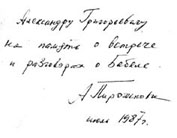 Александру Григорьевичу
на память о встрече
и разговорах о Бабеле.
А. Пирожкова
июль 1987 г.